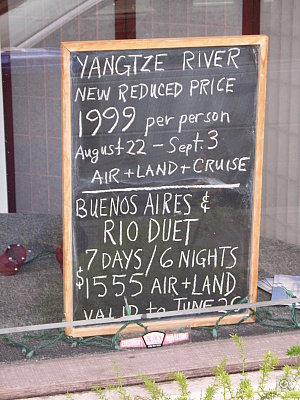 YANGTZE RIVER
NEW REDUCED PRICE
1999 per person
August 22 - Sept. 3
AIR + LAND + CRUISE
BUENOS AIRES &
RIO DUET
7 DAYS / 6 NIGHTS
$1555 AIR + LAND
VALID to JUNE 25